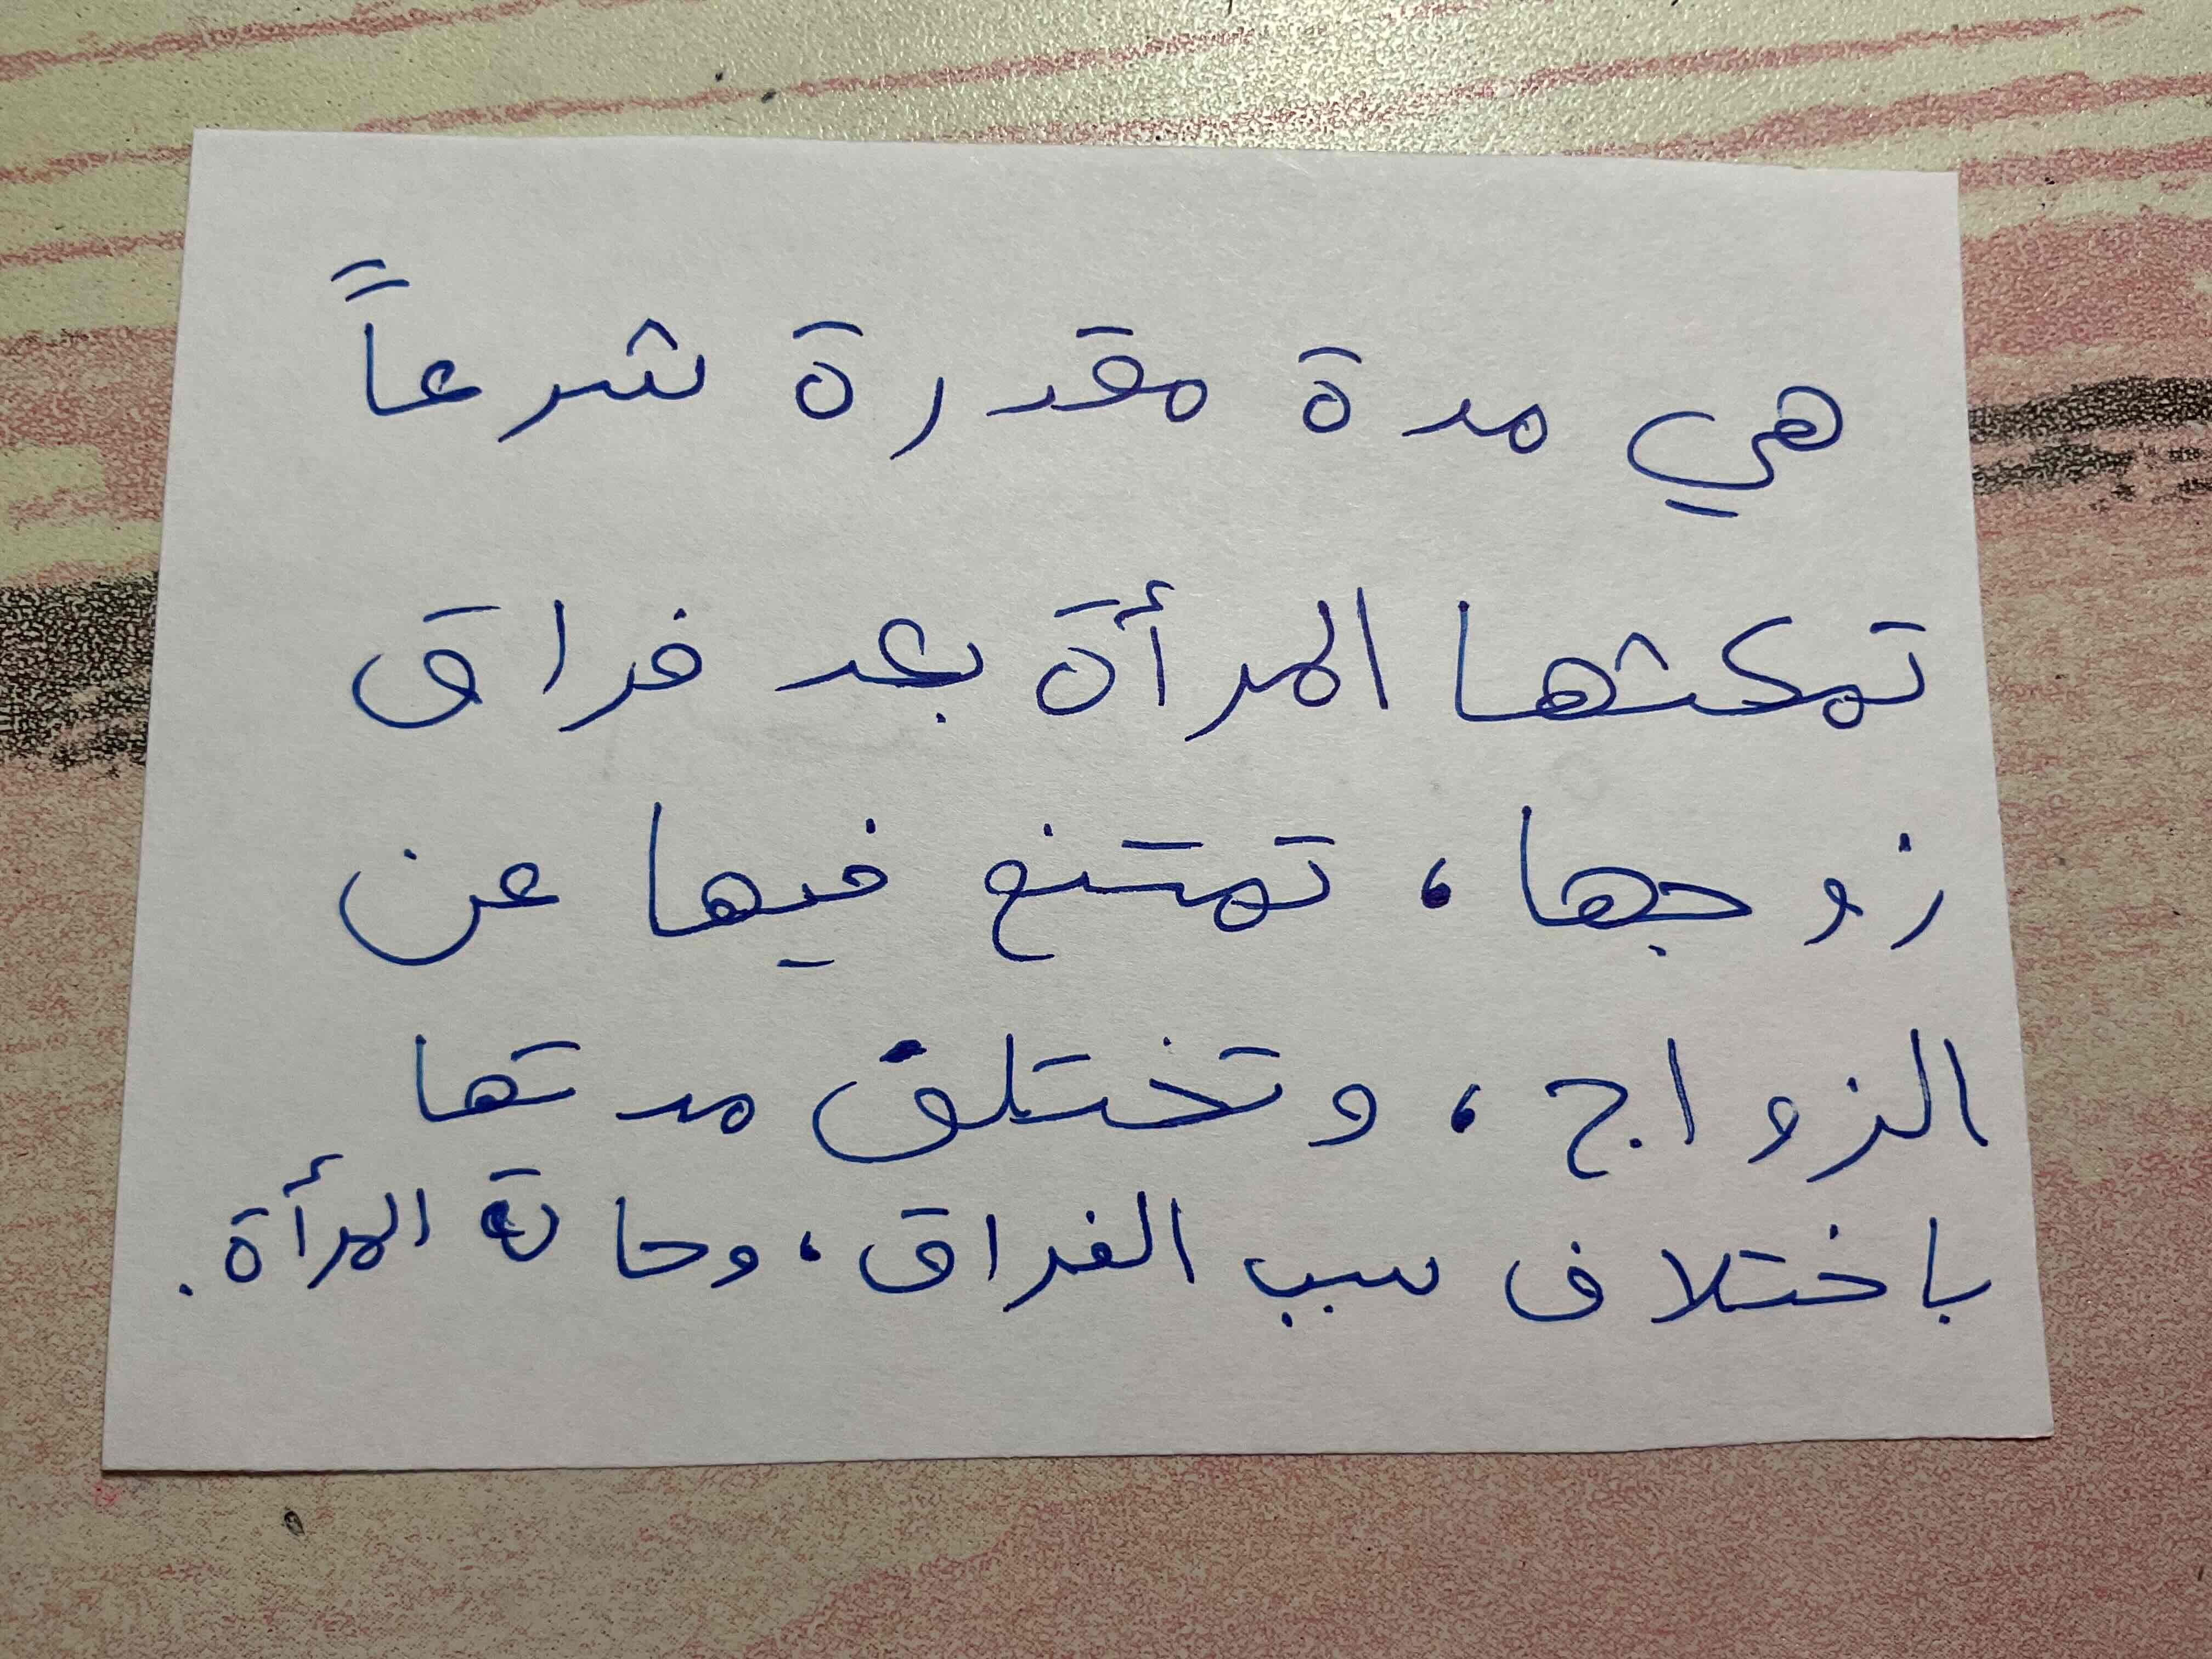 هي مدة مقدرة شرعاً
تمكثها المرأة بعد فراق
زوجها، تمتنع فيها عن
الزواج، وتختلف مدتها
باختلاف سبب الفراق، وحاة المرأة.